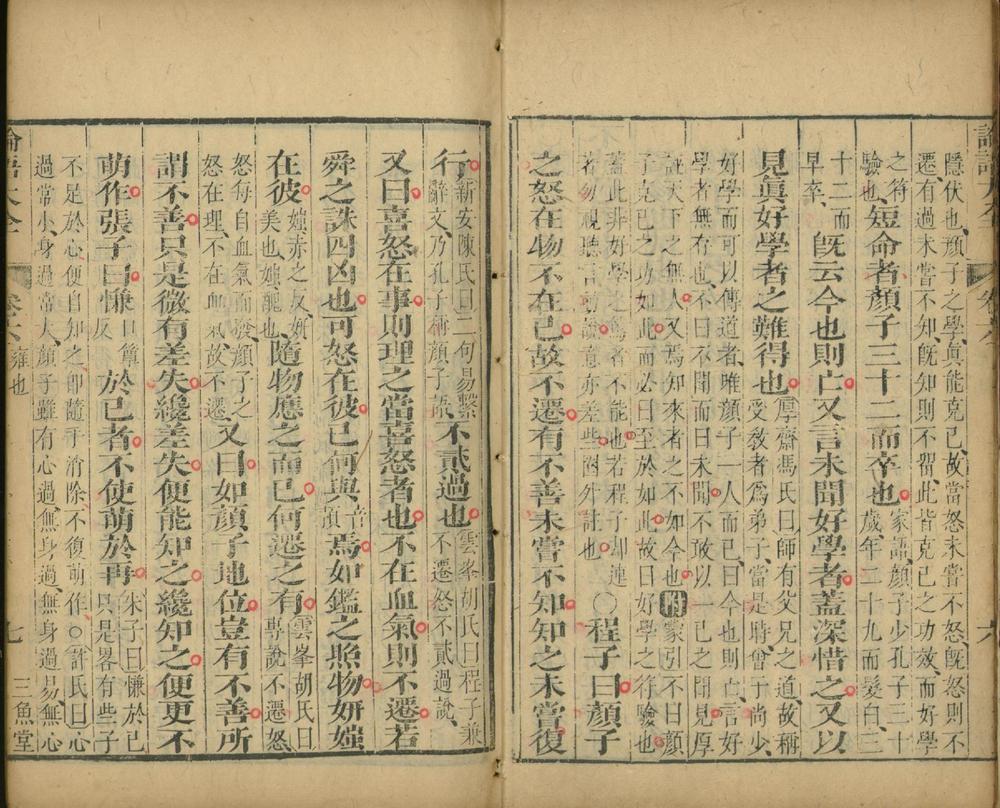 隱伏也顏子之學真能克己故當怒未嘗不怒既怒則不
遷有過未嘗不知既知則不習此皆克己之功效而好學
之符
驗也
短命者顏子三十二而卒也
家語顏子少孔子三十
歲年二十九而髮白三
十二而
早卒
既云今也則亡又言未聞好學者蓋深惜之又以
見眞好學者之難得也
厚齋馮氏曰師有父兄之道故稱
受敎者爲弟子當是時曾子尚少
好學而可以傳道者唯顏子一人而已曰今也則亡言好
學者無存也不曰不聞而曰未聞不敢以一己之聞見厚
誣天下之無人又焉知來者之不如今也附蒙引不曰顏
子克己之功如此而必曰至於如此故曰好學之符驗也
蓋此非好學之篤者不能也若程子却連
若勿視聽言動說意亦差些圈外註也
○程子曰顏子
之怒在物不在己故不遷有不善未嘗不知知之未嘗復
行
新安陳氏曰二句易繫
辭文乃孔子稱顏子語
不貳過也
雲峯胡氏曰程子兼
不遷怒不貳過說
又曰喜怒在事則理之當喜怒者也不在血氣則不遷若
舜之誅四凶也可怒在彼己何與
音
預
焉如鑑之照物妍媸
在彼
媸赤之反妍
美也媸醜也
隨物應之而已何遷之有
雲峯胡氏曰
專說不遷怒
怒每自血氣而發顏子之
怒在理不在血氣故不遷
又曰如顏子地位豈有不善所
謂不善只是微有差失纔差失便能知之纔知之便更不
萌作張子曰慊
口簟
反
於己者不使萌於再
朱子曰慊於己
只是畧有些子
不是於心便自知之即隨手消除不復萌作○許氏曰心
過常小身過常大顏子雖有心過無身過無身過易無心
論語大全
卷六
雍也
七
三魚堂